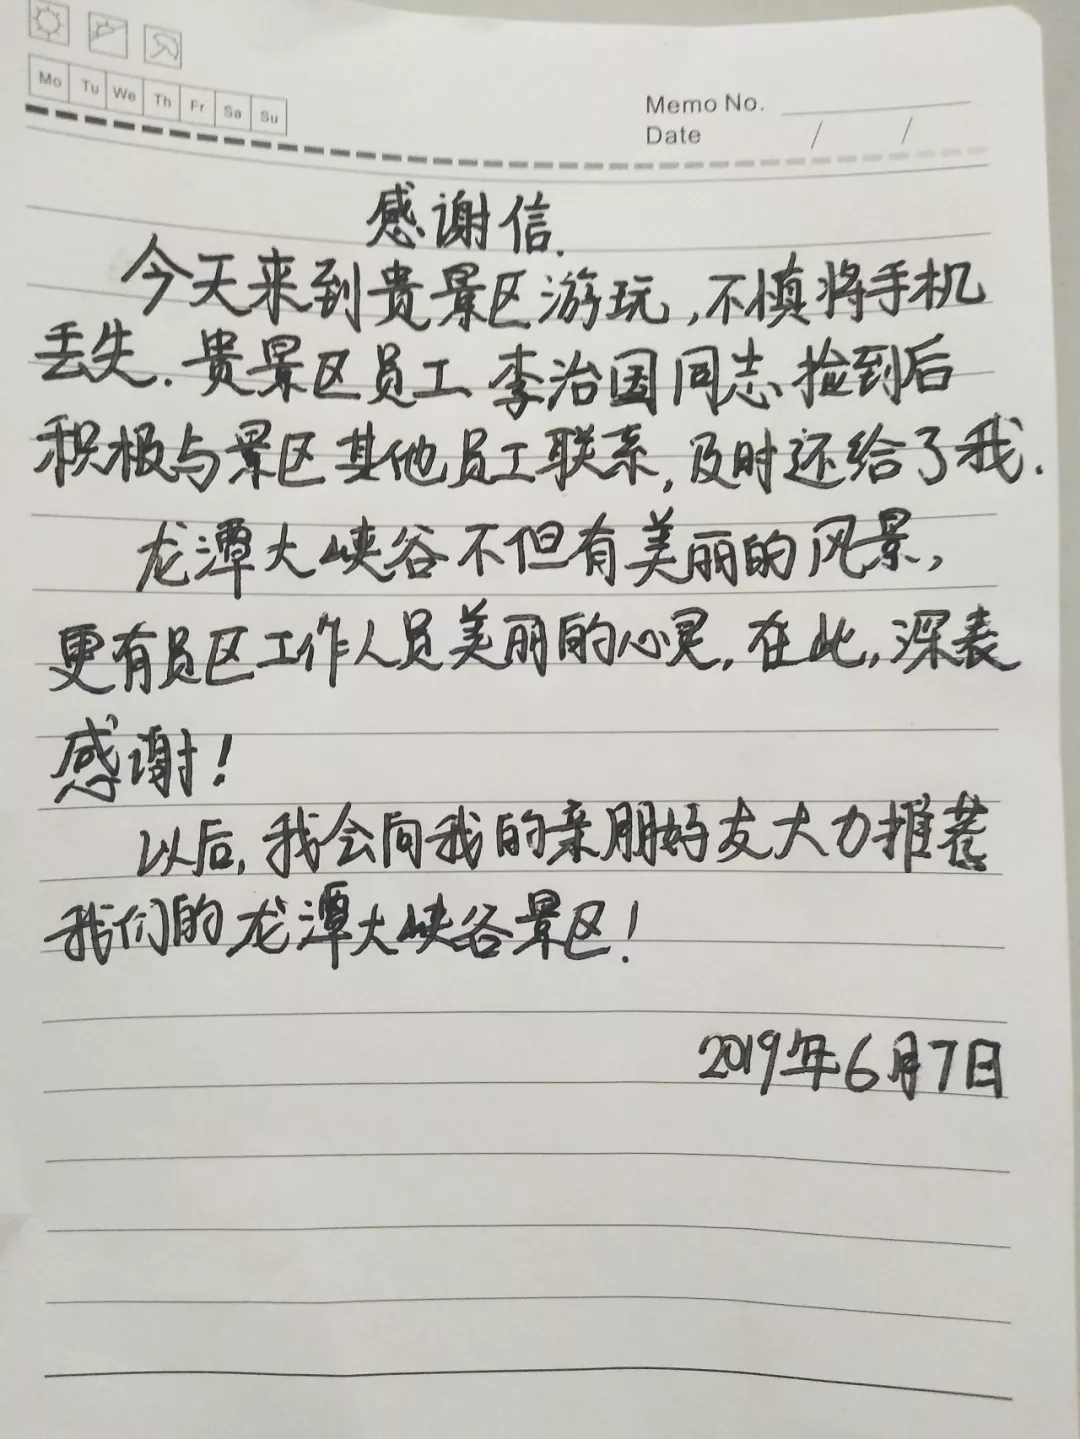 Mo Tu We Th Fr Sa Su
Memo No.
Date / /
感谢信.
今天来到贵景区游玩,不慎将手机
丢失.贵景区员工李治国同志捡到后
积极与景区其他员工联系,及时还给了我.
龙潭大峡谷不但有美丽的风景,
更有员区工作人员美丽的心灵.在此,深表
感谢!
以后,我会向我的亲朋好友大力推荐
我们的龙潭大峡谷景区!
2019年6月7日